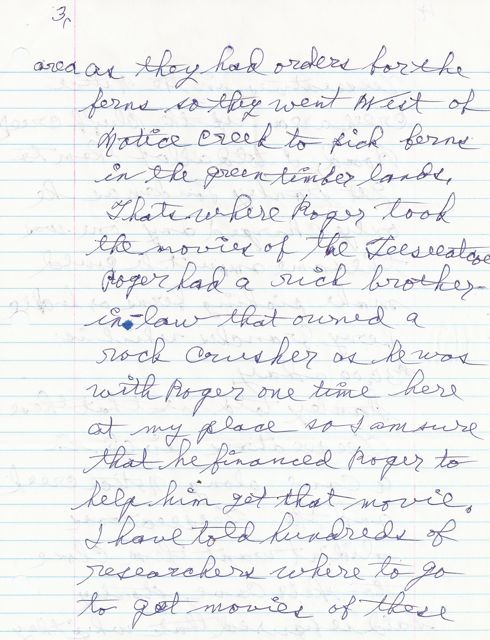 3,
area as they had orders for the
ferns so they went West of
Notice Creek to pick ferns
in the green timber lands.
Thats where Roger took
the movies of the
Roger had a rich brother-
in-law that owned a
rock crusher as he was
with Roger one time here
at my place so I am sure
that he financed Roger to
help him get that movie.
I have told hundreds of
researchers where to go
to get movies of these